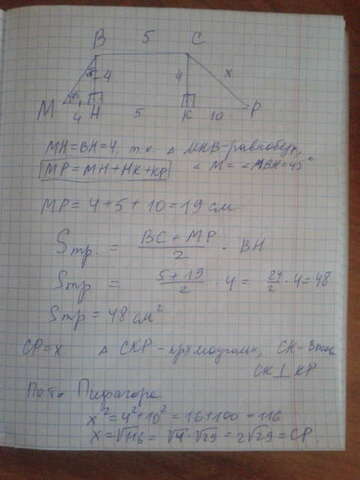 B 5 C
4 4 x
M 4 H 5 K 10 P
MH=BH=4 т.к. △ MHB-равнобедр,
MP=MH+HK+KP ∠M=∠MBH=45°
MP=4+5+10=19 см
Sтр. = BC+MP/2 · BH
Sтр = 5+19/2 · 4 = 24/2 · 4=48
Sтр=48 см²
CP=x △ CKP-прямоугольн, CK-
CK⊥KP
По т. Пифагора
x²=4²+10²=16+100=116
x=√116=√4·√29=2√29=CP.